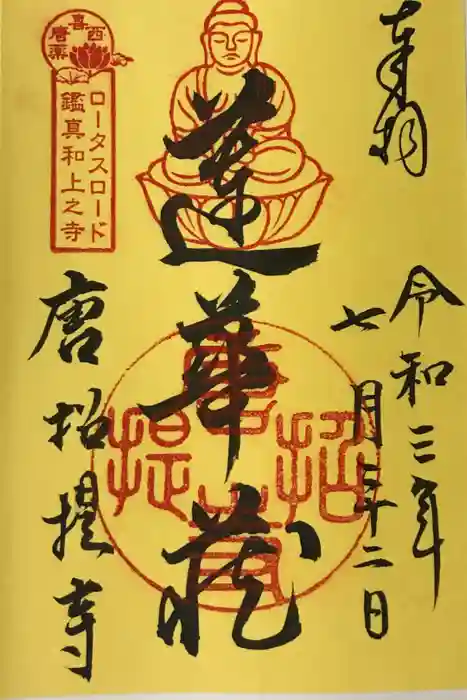 奉拝
令和三年
七月二十二日
蓮華蔵
唐招提寺
喜
西
唐
薬
ロータスロード
鑑真和上之寺
唐
招
提